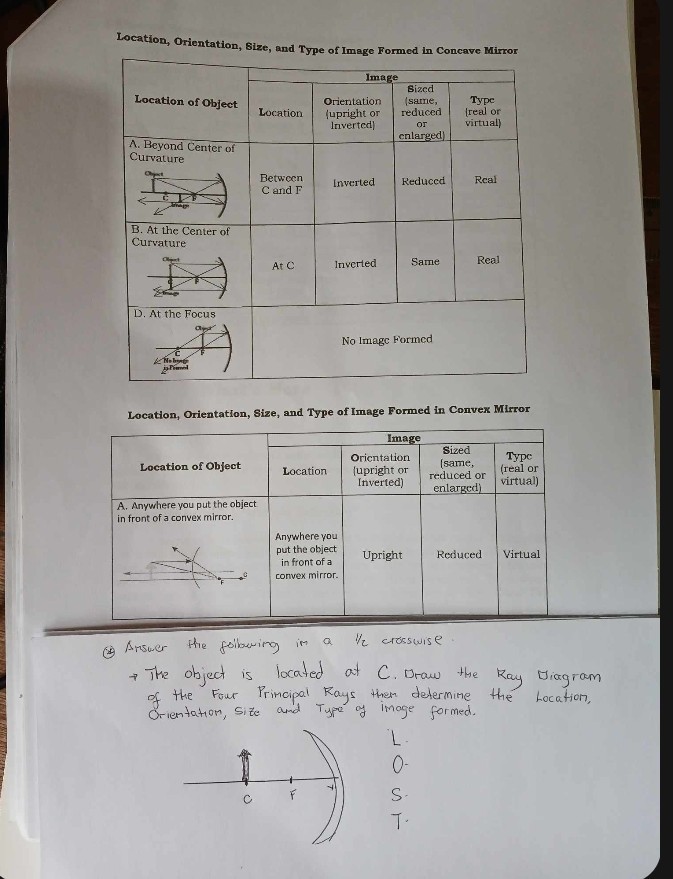 Location, Orientation, Size, and Type of Image Formed in Concave Mirror
Location of Object
Image
Location
Orientation
(upright or
Inverted)
Sized
(same,
reduced
or
enlarged)
Type
(real or
virtual)
A. Beyond Center of
Curvature
Object
C
F
Image
Between
C and F
Inverted
Reduced
Real
B. At the Center of
Curvature
Object
C
F
Image
At C
Inverted
Same
Real
D. At the Focus
Object
C
F
No Image
is Formed
No Image Formed
Location, Orientation, Size, and Type of Image Formed in Convex Mirror
Location of Object
Image
Location
Orientation
(upright or
Inverted)
Sized
(same,
reduced or
enlarged)
Type
(real or
virtual)
A. Anywhere you put the object
in front of a convex mirror.
F
C
Anywhere you
put the object
in front of a
convex mirror.
Upright
Reduced
Virtual
Answer the following in a 1/2 crosswise.
→ The object is located at C. Draw the Ray Diagram
of the Four Principal Rays then determine the Location,
Orientation, Size and Type of image formed.
C
F
V
L.
O-
S-
T-